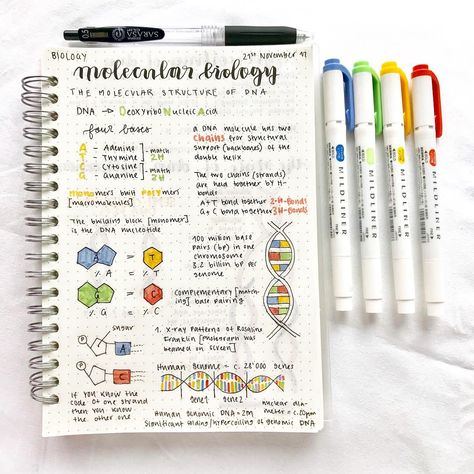 0.5 SARASA
BIOLOGY
21st November 17
molecular biology
THE MOLECULAR STRUCTURE OF DNA
DNA → DeoxyriboNucleicAcid
four bases
A - Adenine
T - Thymine
match 2H
C - Cytosine
G - Guanine
match 3H
Monomers built Polymers
[macromolecules]
The building block [monomer]
is the DNA nucleotide
a DNA molecule has two
chains for structural
support (backbones) of the
double helix
The two chains (strands)
are held together by H-
bonds
A+T bond together 2-H-Bonds
G+C bond together 3-H-Bonds
A = T
% A = % T
G = C
% G = % C
100 million base
pairs (bp) in one
chromosome
3.2 billion bp per
genome
Complementary [match-
ing] base pairing
sugar
P
A
P
C
If you know the
code of one strand
then you know
the other one
1. X-ray patterns of Rosalind
Franklin [photograph was
beamed on screen]
Human Genome ~ c. 28'000 genes
gene1 gene2
Human genomic DNA = 2m
nuclear dia-
meter = c.10µm
significant coiling/hypercoiling of genomic DNA
MILDLINER
MILDLINER
MILDLINER
MILDLINER